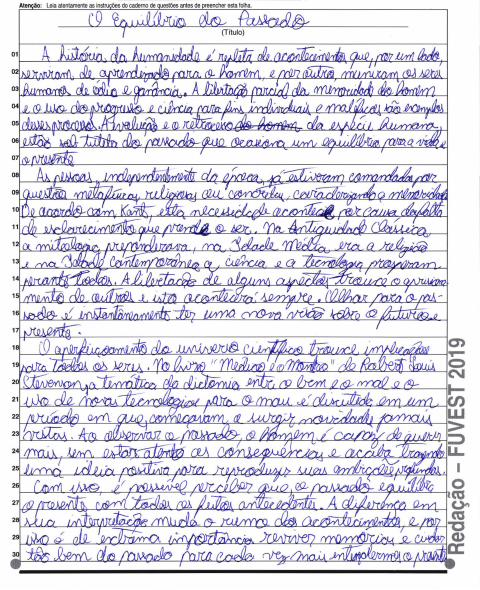 Atenção: Leia atentamente as instruções do caderno de questões antes de preencher esta folha.
O Equilíbrio do Passado
(Título)
01 A história da humanidade é repleta de acontecimentos que, por um lado,
02 serviram de aprendizado para o homem, e por outro, muniram os seres
03 humanos de ódio e ganância. A libertação parcial da menoridade do homem
04 e o uso do progresso e ciência para fins individuais e maléficos são exemplos
05 desse processo. A evolução e o retrocesso do homem da espécie humana,
06 estão sob tutela do passado que ocasiona um equilíbrio para a vida e
07 o presente.
08 As pessoas, independentemente da época, já estiveram comandadas por
09 questões metafísicas, religiosas ou concretas, caracterizando a menoridade.
10 De acordo com Kant, esta necessidade acontece por causa da falta
11 de esclarecimento que prende o ser. Na Antiguidade Clássica
12 a mitologia preponderava, na Idade Média era a religião
13 e na Idade Contemporânea a ciência e a tecnologia prosperam
14 perante todos. A libertação de alguns aspectos trouxe o aprisiona-
15 mento de outros e isto acontecerá sempre. Olhar para o pas-
16 sado é instantâneamente ter uma nova visão sobre o futuro e
17 presente.
18 O aperfeiçoamento do universo científico trouxe implicações
19 para todos os seres. No livro "Médico e o Monstro" de Robert Louis
20 Stevenson, a temática da dictomia entre o bem e o mal e o
21 uso de novas tecnologias para o mau é discutida em um
22 período em que começaram a surgir novidades jamais
23 vistas. Ao observar o passado, o homem é capaz de querer
24 mais, sem estar atento as consequências e acaba trazendo
25 uma ideia positiva para reproduzir suas ambições
26 Com isso, é possível perceber que, o passado equilibra
27 o presente com todos os feitos antecedentes. A diferença em
28 sua interpretação muda o rumo dos acontecimentos, e por
29 isso é de extrema importância reviver memórias e cuidar
30 tão bem do passado para cada vez mais entendermos o presente
Redação – FUVEST 2019